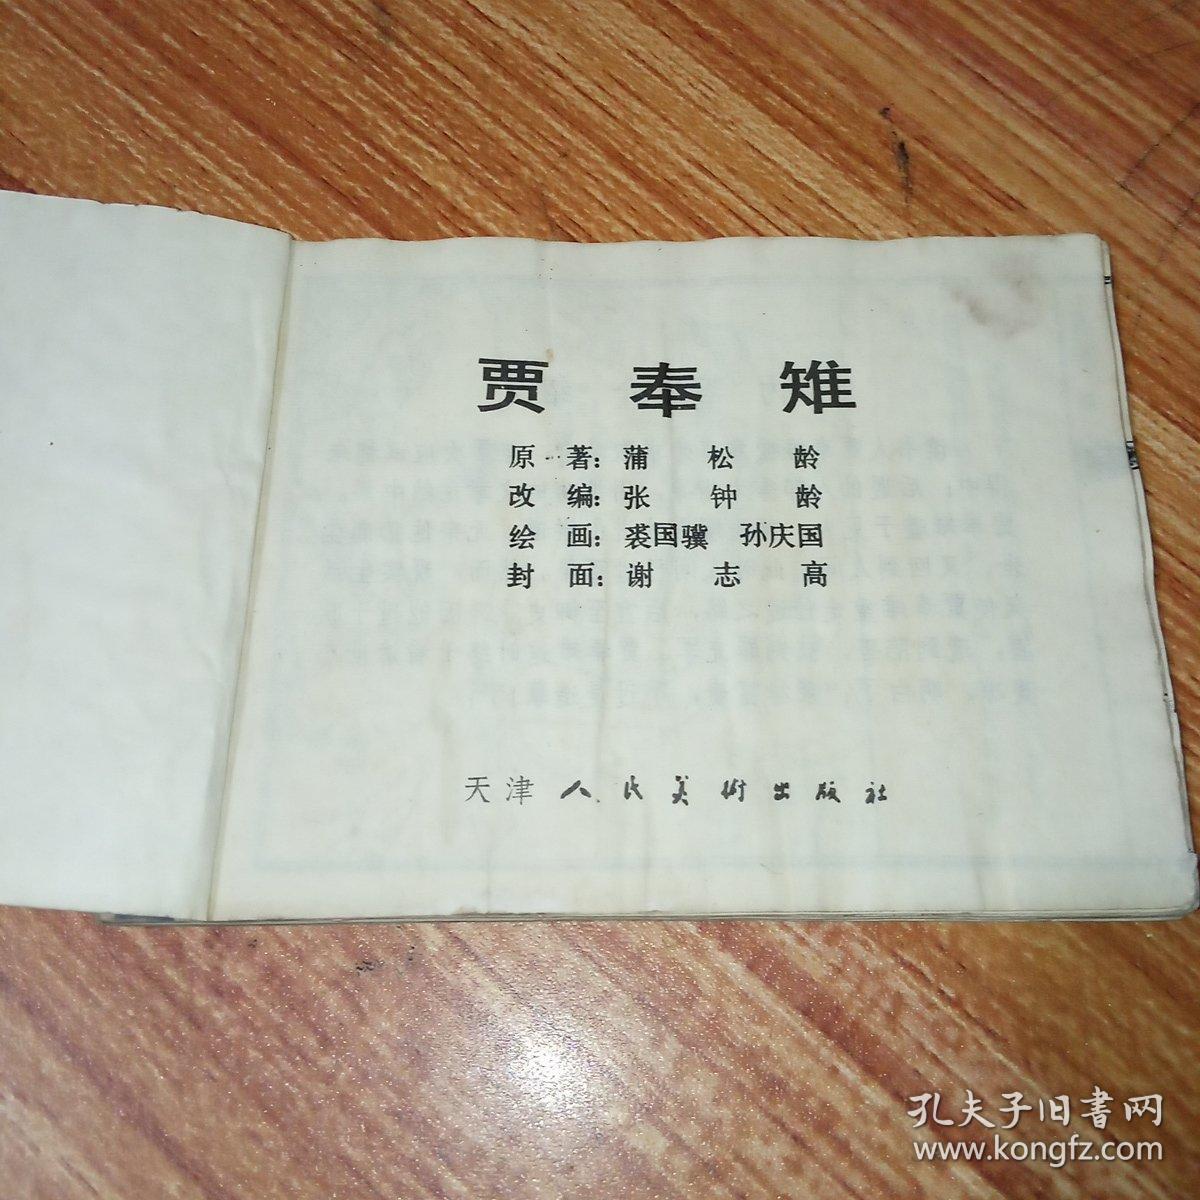 贾奉雉
原著：蒲松龄
改编：张钟龄
绘画：裘国骥 孙庆国
封面：谢志高
天津人民美術出版社
孔夫子旧書网
www.kongfz.com